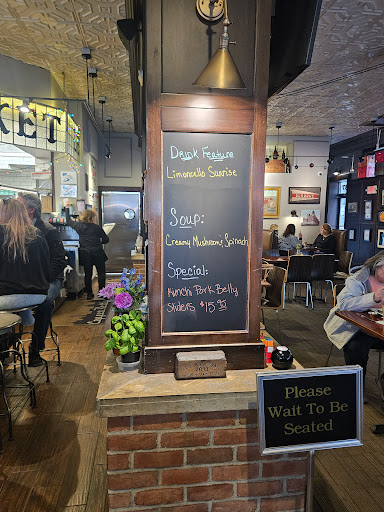 KET
Drink Feature
Limoncello Sunrise
Soup:
Creamy Mushroom & Spinach
Special:
Kimchi Pork Belly
Sliders $15.95
Please
Wait To Be
Seated